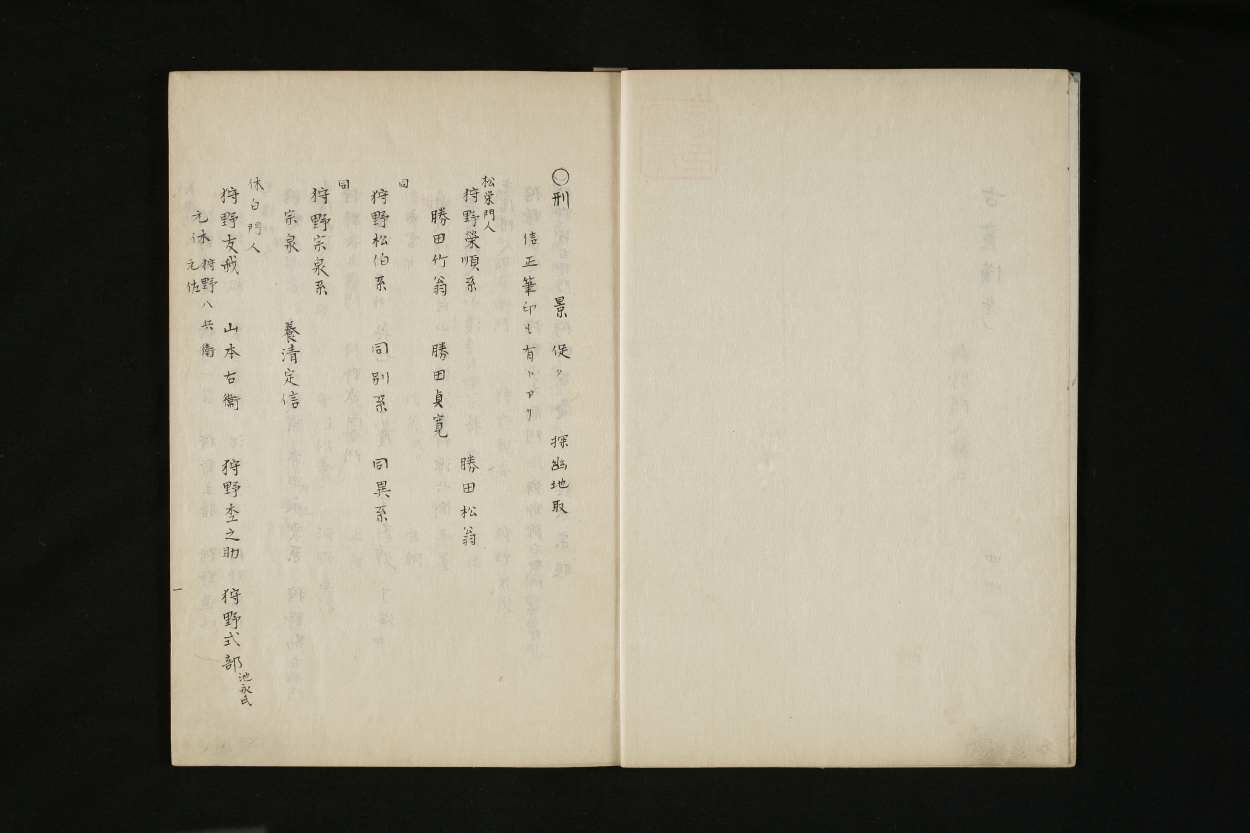 ○刑　景　促〃　探幽地取
信正筆印モ有トアリ
松栄門人
狩野榮順系　勝田松翁
勝田竹翁　勝田貞寛
同
狩野松伯系　同別系　同異系
同
狩野宗泉系
宗泉　養清定信
休白門人
狩野友我　山本右衛　狩野杢之助　狩野式部 池永氏
元休 狩野八兵衛
元佐